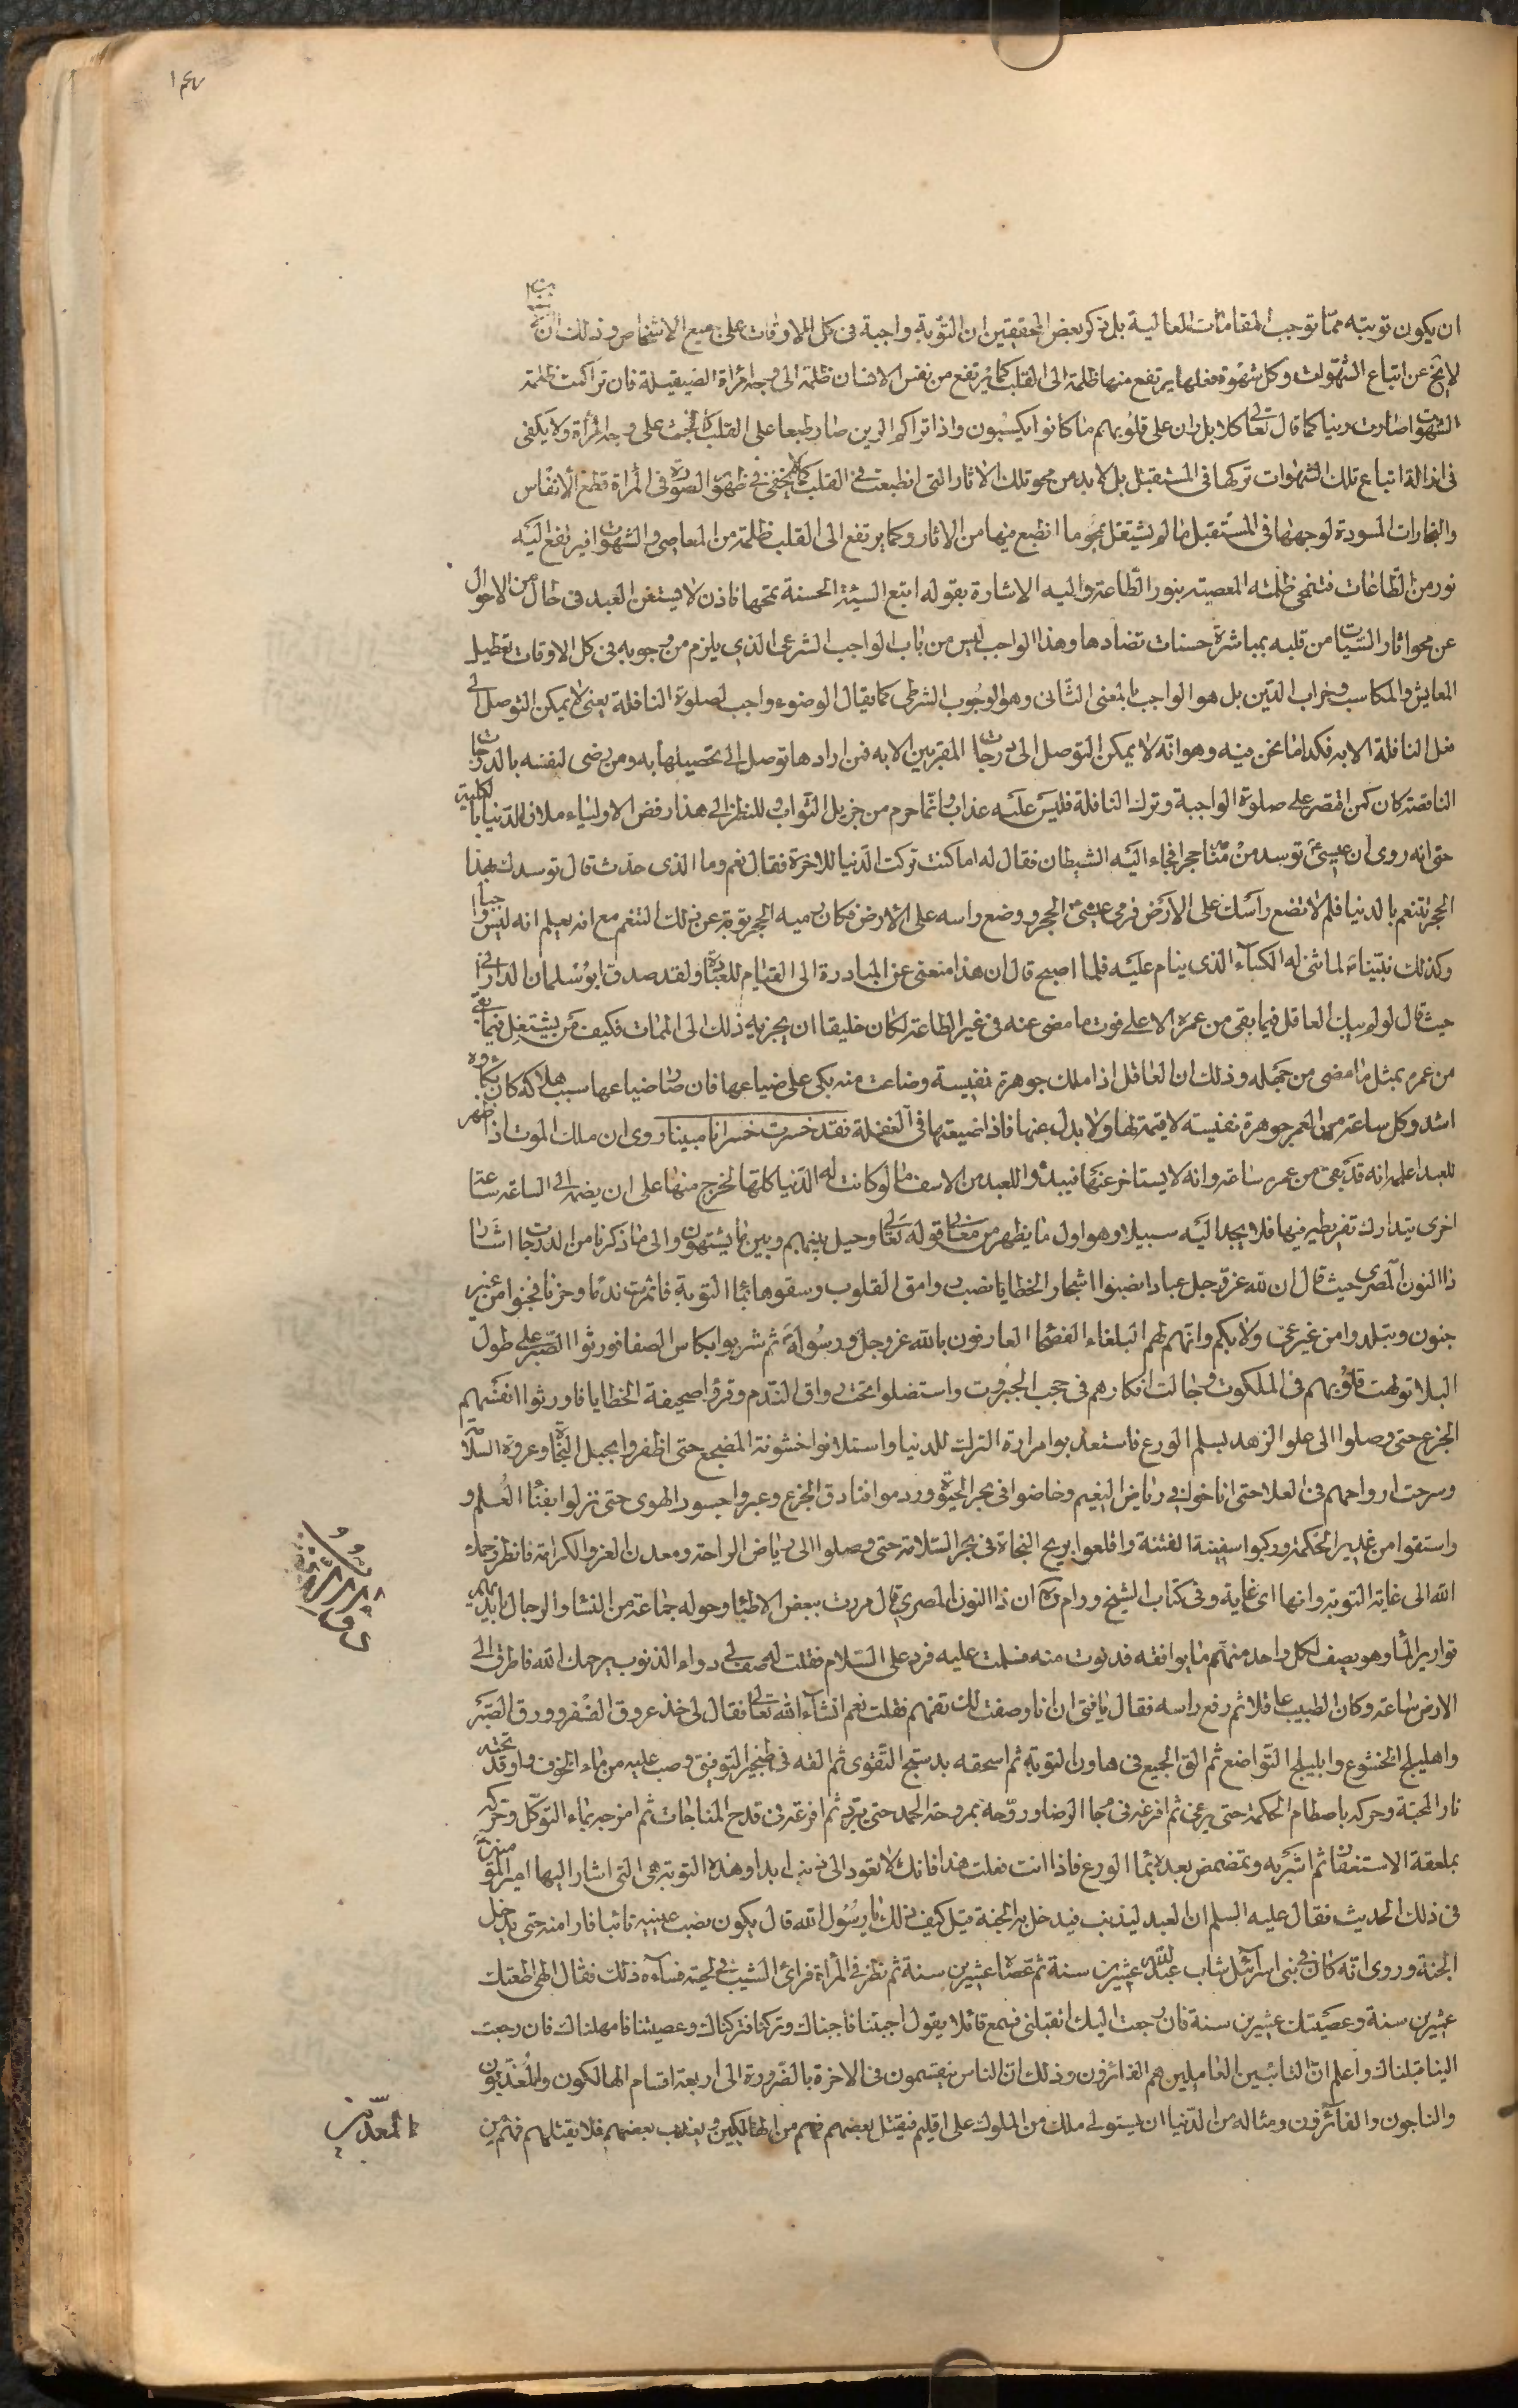 ١٤٧
ان يكون توبته ممّا توجب المقامات العالية بل ذكر بعض المحققين ان التوبة واجبة فى كل الاوقات على جميع الاشخاص وذلك انّه
لايخ عن اتباع الشهوات وكل شهوة فعلها يرتفع منها ظلمة الى القلب كما يرتفع من نفس الانسان ظلمة الى وجه المرأة الصيقيلة فان تراكمت ظلمة
الشهوات صارت رينا كما قال تعالى كلا بل ران على قلوبهم ما كانوا يكسبون واذا تراكم الرين صار طبعا على القلب كالخبث على وجه المرأة ولا يكفى
فى ازالة اتباع تلك الشهوات تركها فى المستقبل بل لا بد من محو تلك الاثار التى انطبعت فى القلب كما لا يكفى فى ظهور الصورة فى المرأة قطع الانفاس
والبخارات المسودة لوجهها فى المستقبل ما لم يشتغل بمحو ما انطبع فيها من الاثار وكما يرتفع الى القلب ظلمة من المعاصى والشهوات فيرتفع اليه
نور من الطاعات فتنمحى ظلمة المعصية بنور الطاعة واليه الاشارة بقوله اتبع السيئة الحسنة تمحها فاذن لا يستغنى العبد فى حال من الاحوال
عن محو اثار السيّات من قلبه بمباشرة حسنات تضادها وهذا الواجب ليس من باب الواجب الشرعى الذى يلزم من وجوبه فى كل الاوقات تعطيل
المعايش والمكاسب وخراب الدين بل هو الواجب بالمعنى الثانى وهو الوجوب الشرطى كما يقال الوضوء واجب لصلوة النافلة يعنى لا يمكن التوصل الى
فعل النافلة الا به فكذا ما نحن فيه وهو انه لا يمكن التوصل الى درجات المقربين الا به فمن ارادها توصل الى تحصيلها به ومن رضى لنفسه بالدرجات
الناقصة كان كمن اقتصر على صلوة الواجبة وترك النافلة فليس عليه عذاب وانّما حرم من جزيل الثواب وللنظر الى هذا رفض الاولياء ملاذ الدنيا بالكلية
حتى انه روى ان عيسى ع توسد يوما حجرا فجاء اليه الشيطان فقال له اما كنت تركت الدنيا للاخرة فقال نعم وما الذى حدث قال توسدك بهذا
الحجر تنعم بالدنيا فلم لا تضع رأسك على الارض فرمى عيسى ع الحجر ووضع راسه على الارض فكان رميه الحجر توبة عن ذلك التنعم مع انه يعلم انه ليس واجبا
وكذلك نبيّنا ص لما ثنى له الكساء الذى ينام عليه فلما اصبح قال ان هذا منعنى عن المبادرة الى القيام للعبادة ولقد صدق ابو سلمان الدارانى
حيث قال لو لم يبك العاقل فيما بقى من عمره الا على فوت ما مضى عنه فى غير الطاعة لكان خليقا ان يحزنه ذلك الى الممات فكيف من يشتغل فيما بقى
من عمره بمثل ما مضى من جهله وذلك ان العاقل اذا ملك جوهرة نفيسة وضاعت منه بكى على ضياعها فان صار ضياعها سبب هلاكه كان بكاؤه
اشد وكل ساعة من العمر جوهرة نفيسة لا قيمة لها ولا بدل عنها فاذا ضيعتها فى الغفلة فقد خسرت خسرانا مبينا وروى ان ملك الموت اذا ظهر
للعبد اعلمه انه قد بقى من عمره ساعة وانه لا يستاخر عنها فيبدوا للعبد من الاسف ما لو كانت له الدنيا كلّها لخرج منها على ان يضم الى الساعة ساعة
اخرى يتدارك تفريطه فيها فلا يجد اليه سبيلا وهو اول ما يظهر من معانى قوله تعالى وحيل بينهم وبين ما يشتهون والى ما ذكرنا من الدرجات اشار
ذا النون المصرى حيث قال ان لله عز وجل عبادا نصبوا اشجار الخطايا نصب روامق القلوب وسقوها بماء التوبة فاثمرت ندما وحزنا فجنوا من غير
جنون وتبلدوا من غير عى ولا بكم وانّهم لهم البلغاء الفصحاء العارفون بالله عز وجل ورسوله ثم شربوا بكاس الصفا فورثوا الصبر على طول
البلا تولهت قلوبهم فى الملكوت وجالت افكارهم فى حجب الجبروت واستضلوا تحت رواق الندم وقرؤا صحيفة الخطايا فاورثوا انفسهم
الجزع حتى وصلوا الى علو الزهد بسلم الورع فاستعذبوا مرارة الترك للدنيا واستلانوا خشونة المضجع حتى اظفروا بحبل النجاة وعروة السلامة
وسرحت ارواحهم فى العلا حتى اناخوا فى رياض النعيم وخاضوا فى بحر الحيوة وردموا خنادق الجزع وعبروا جسور الهوى حتى نزلوا بفناء العلم و
واستقوا من غدير الحكمة وركبوا سفينة الفتنة واقلعوا بريح النجاة فى بحر السلامة حتى وصلوا الى رياض الراحة ومعدن العز والكرامة فانظر رحمك
الله الى غاية التوبة وانها اى غاية وفى كتاب الشيخ ورام ره ان ذا النون المصرى قال مررت ببعض الاطبّاء وحوله جماعة من النساء والرجال بايديهم
قوارير الماء وهو يصف لكل واحد منهم ما يوافقه فدنوت منه فسلمت عليه فرد على السلام فقلت له صف لى دواء الذنوب يرحمك الله فاطرق الى
الارض ساعة وكان الطبيب عاقلا ثم رفع راسه فقال يا فتى ان انا وصفت لك تفهم فقلت نعم انشاء الله تعالى فقال لى خذ عروق الفقر وورق الصبر
واهليلج الخشوع وابليلج التواضع ثم الق الجميع فى هاون التوبة ثم اسحقه بدستج التقوى ثم القه فى طنجير التوفيق وصب عليه من ماء الخوف واوقد تحته
نار المحبة وحركه باصطام الحكمة حتى يرغى ثم افرغه فى جام الرضا وروّحه بمروحة الحمد حتى يبرد ثم افرغه فى قدح المناجات ثم امزجه بماء التوكل وحركه
بملعقة الاستغفار ثم اشربه وتمضمض بعده بماء الورع فاذا انت فعلت هذا فانك لا تعود الى ذنب ابدا وهذه التوبة هى التى اشار اليها امير المؤمنين
فى ذلك الحديث فقال عليه السلم ان العبد ليذنب فيدخل به الجنة قيل كيف ذلك يا رسول الله قال يكون نصب عينيه تائبا فارا منه حتى يدخل
الجنة وروى انّه كان فى بنى اسرائيل شاب عبد الله عشرين سنة ثم عصاه عشرين سنة ثم نظر فى المرأة فرأى الشيب فى لحيته فساءه ذلك فقال الهى اطعتك
عشرين سنة وعصيتك عشرين سنة فان رجعت اليك اتقبلنى فسمع قائلا يقول اجبتنا فاجبناك وتركتنا فتركناك وعصيتنا فامهلناك فان رجعت
الينا قبلناك واعلم انّ التائبين العاملين هم الفائزون وذلك انّ الناس ينقسمون فى الاخرة بالضرورة الى اربعة اقسام الهالكون والمعذبون
والناجون والفائزون ومثاله من الدنيا ان يستولى ملك من الملوك على اقليم فيقتل بعضهم فهم من الهالكين ويعذب بعضهم فلا يقتلهم فهم من
المعذّبين